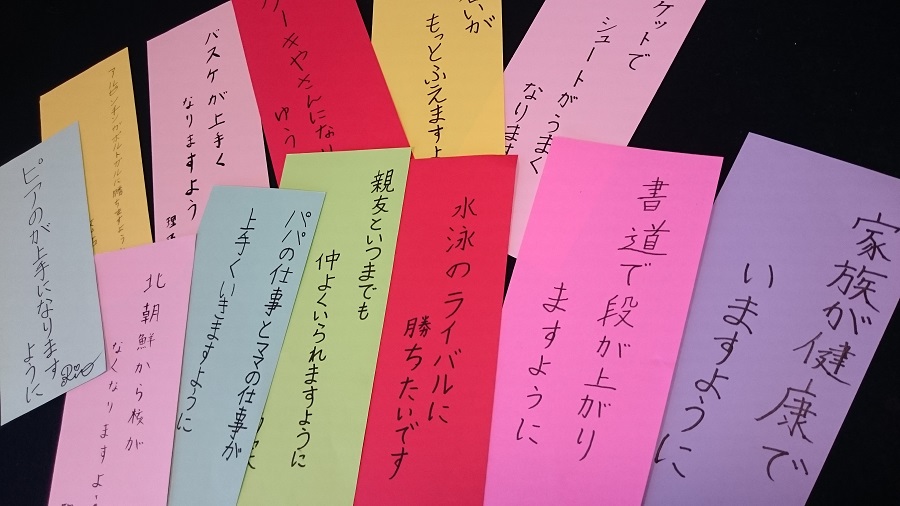 ケットで
シュートがうまく
なります
いが
もっとふえますよ
ーキやさんになり
ゆう
バスケが上手く
なりますよう
家族が健康で
いますように
書道で段が上がり
ますように
水泳のライバルに
勝ちたいです
親友といつまでも
仲よくいられますように
パパの仕事とママの仕事が
上手くいきますように
北朝鮮から核が
なくなりますよう
ピアのが上手になります
ように